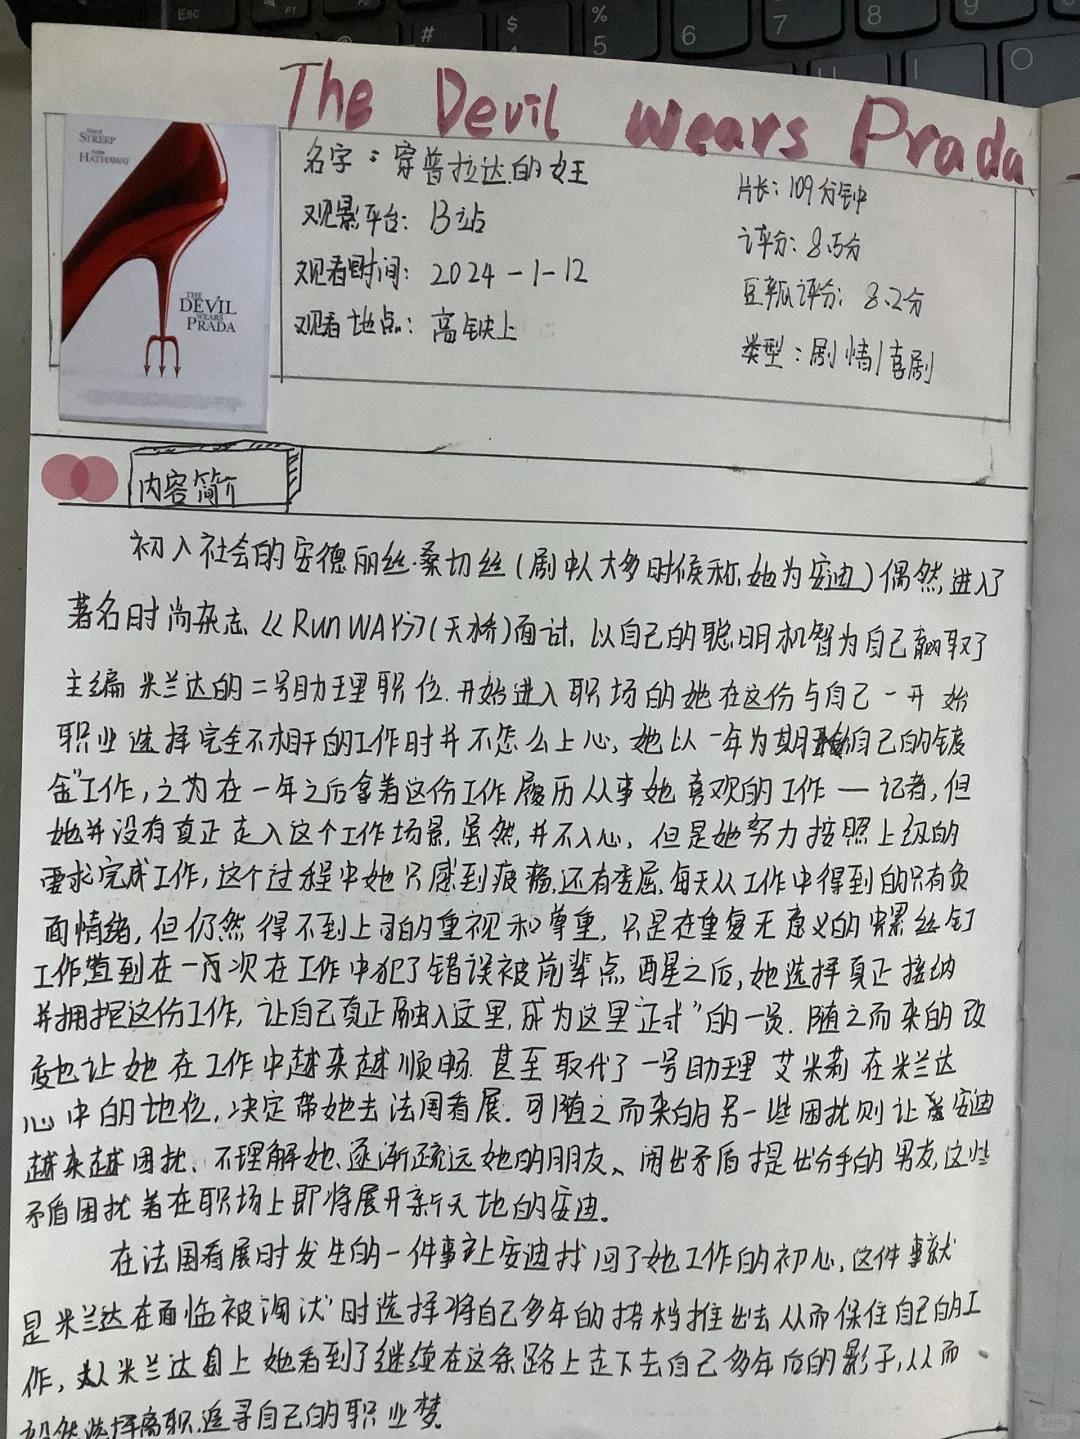 Esc
F1
#
$
4
%
5
6
7
8
9
U
I
O
The Devil wears Prada
Meryl
STREEP
Anne
HATHAWAY
THE
DEVIL
WEARS
PRADA
名字：穿普拉达的女王
观影平台：B站
观看时间：2024-1-12
观看地点：高铁上
片长：109分钟
评分：8.5分
豆瓣评分：8.2分
类型：剧情/喜剧
内容简介
初入社会的安德丽丝·桑切丝(剧中人大多时候称她为安迪)偶然进入了
著名时尚杂志《RunWAY》(天桥)面试，以自己的聪明机智为自己赢取了
主编米兰达的二号助理职位.开始进入职场的她在这份与自己一开始
职业选择完全不相干的工作时并不怎么上心，她以一年为期自己的镀
金"工作，之为在一年之后拿着这份工作履历从事她喜欢的工作—记者，但
她并没有真正走入这个工作场景，虽然，并不入心，但是她努力按照上级的
要求完成工作，这个过程中她只感到疲惫，还有委屈，每天从工作中得到的只有负
面情绪，但仍然得不到上司的重视和尊重，只是在重复无意义的螺丝钉
工作，直到在一次次在工作中犯了错误被前辈点醒之后，她选择真正接纳
并拥抱这份工作，让自己真正融入这里，成为这里"正式"的一员.随之而来的改
变也让她在工作中越来越顺畅.甚至取代了一号助理艾米莉在米兰达
心中的地位，决定带她去法国看展.可随之而来的另一些困扰则让安迪
越来越困扰、不理解她、逐渐疏远她的朋友、闹出矛盾提出分手的男友，这些
矛盾困扰着在职场上即将展开新天地的安迪。
在法国看展时发生的一件事让安迪找回了她工作的初心，这件事就
是米兰达在面临被淘汰时选择将自己多年的搭档推出去从而保住自己的工
作，从米兰达身上她看到了继续在这条路上走下去自己多年后的影子，从而
毅然选择离职，追寻自己的职业梦.